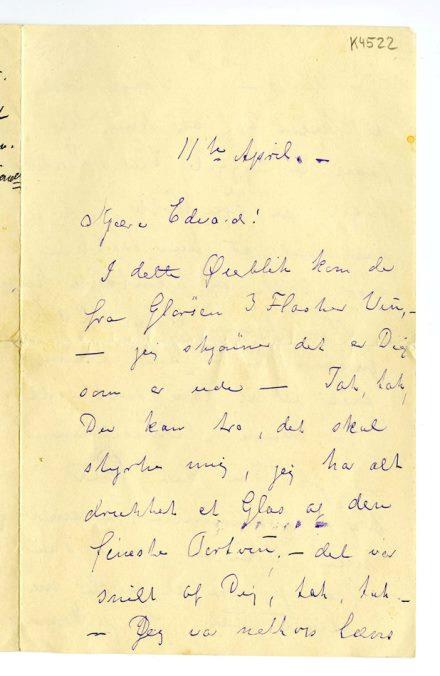 K4522
11te April. –
Kjære Edvard!
I dette Øieblik kom de
fra Glørsen 3 Flasker Vin, –
– jeg skjønner det er Dig
som er ude – Tak, tak,
Du kan tro, det skal
styrke mig, jeg har alt
drukket et Glas af den
fineste Portvin, – det var
snilt af Dig, tak, tak –
– Jeg var netop læns